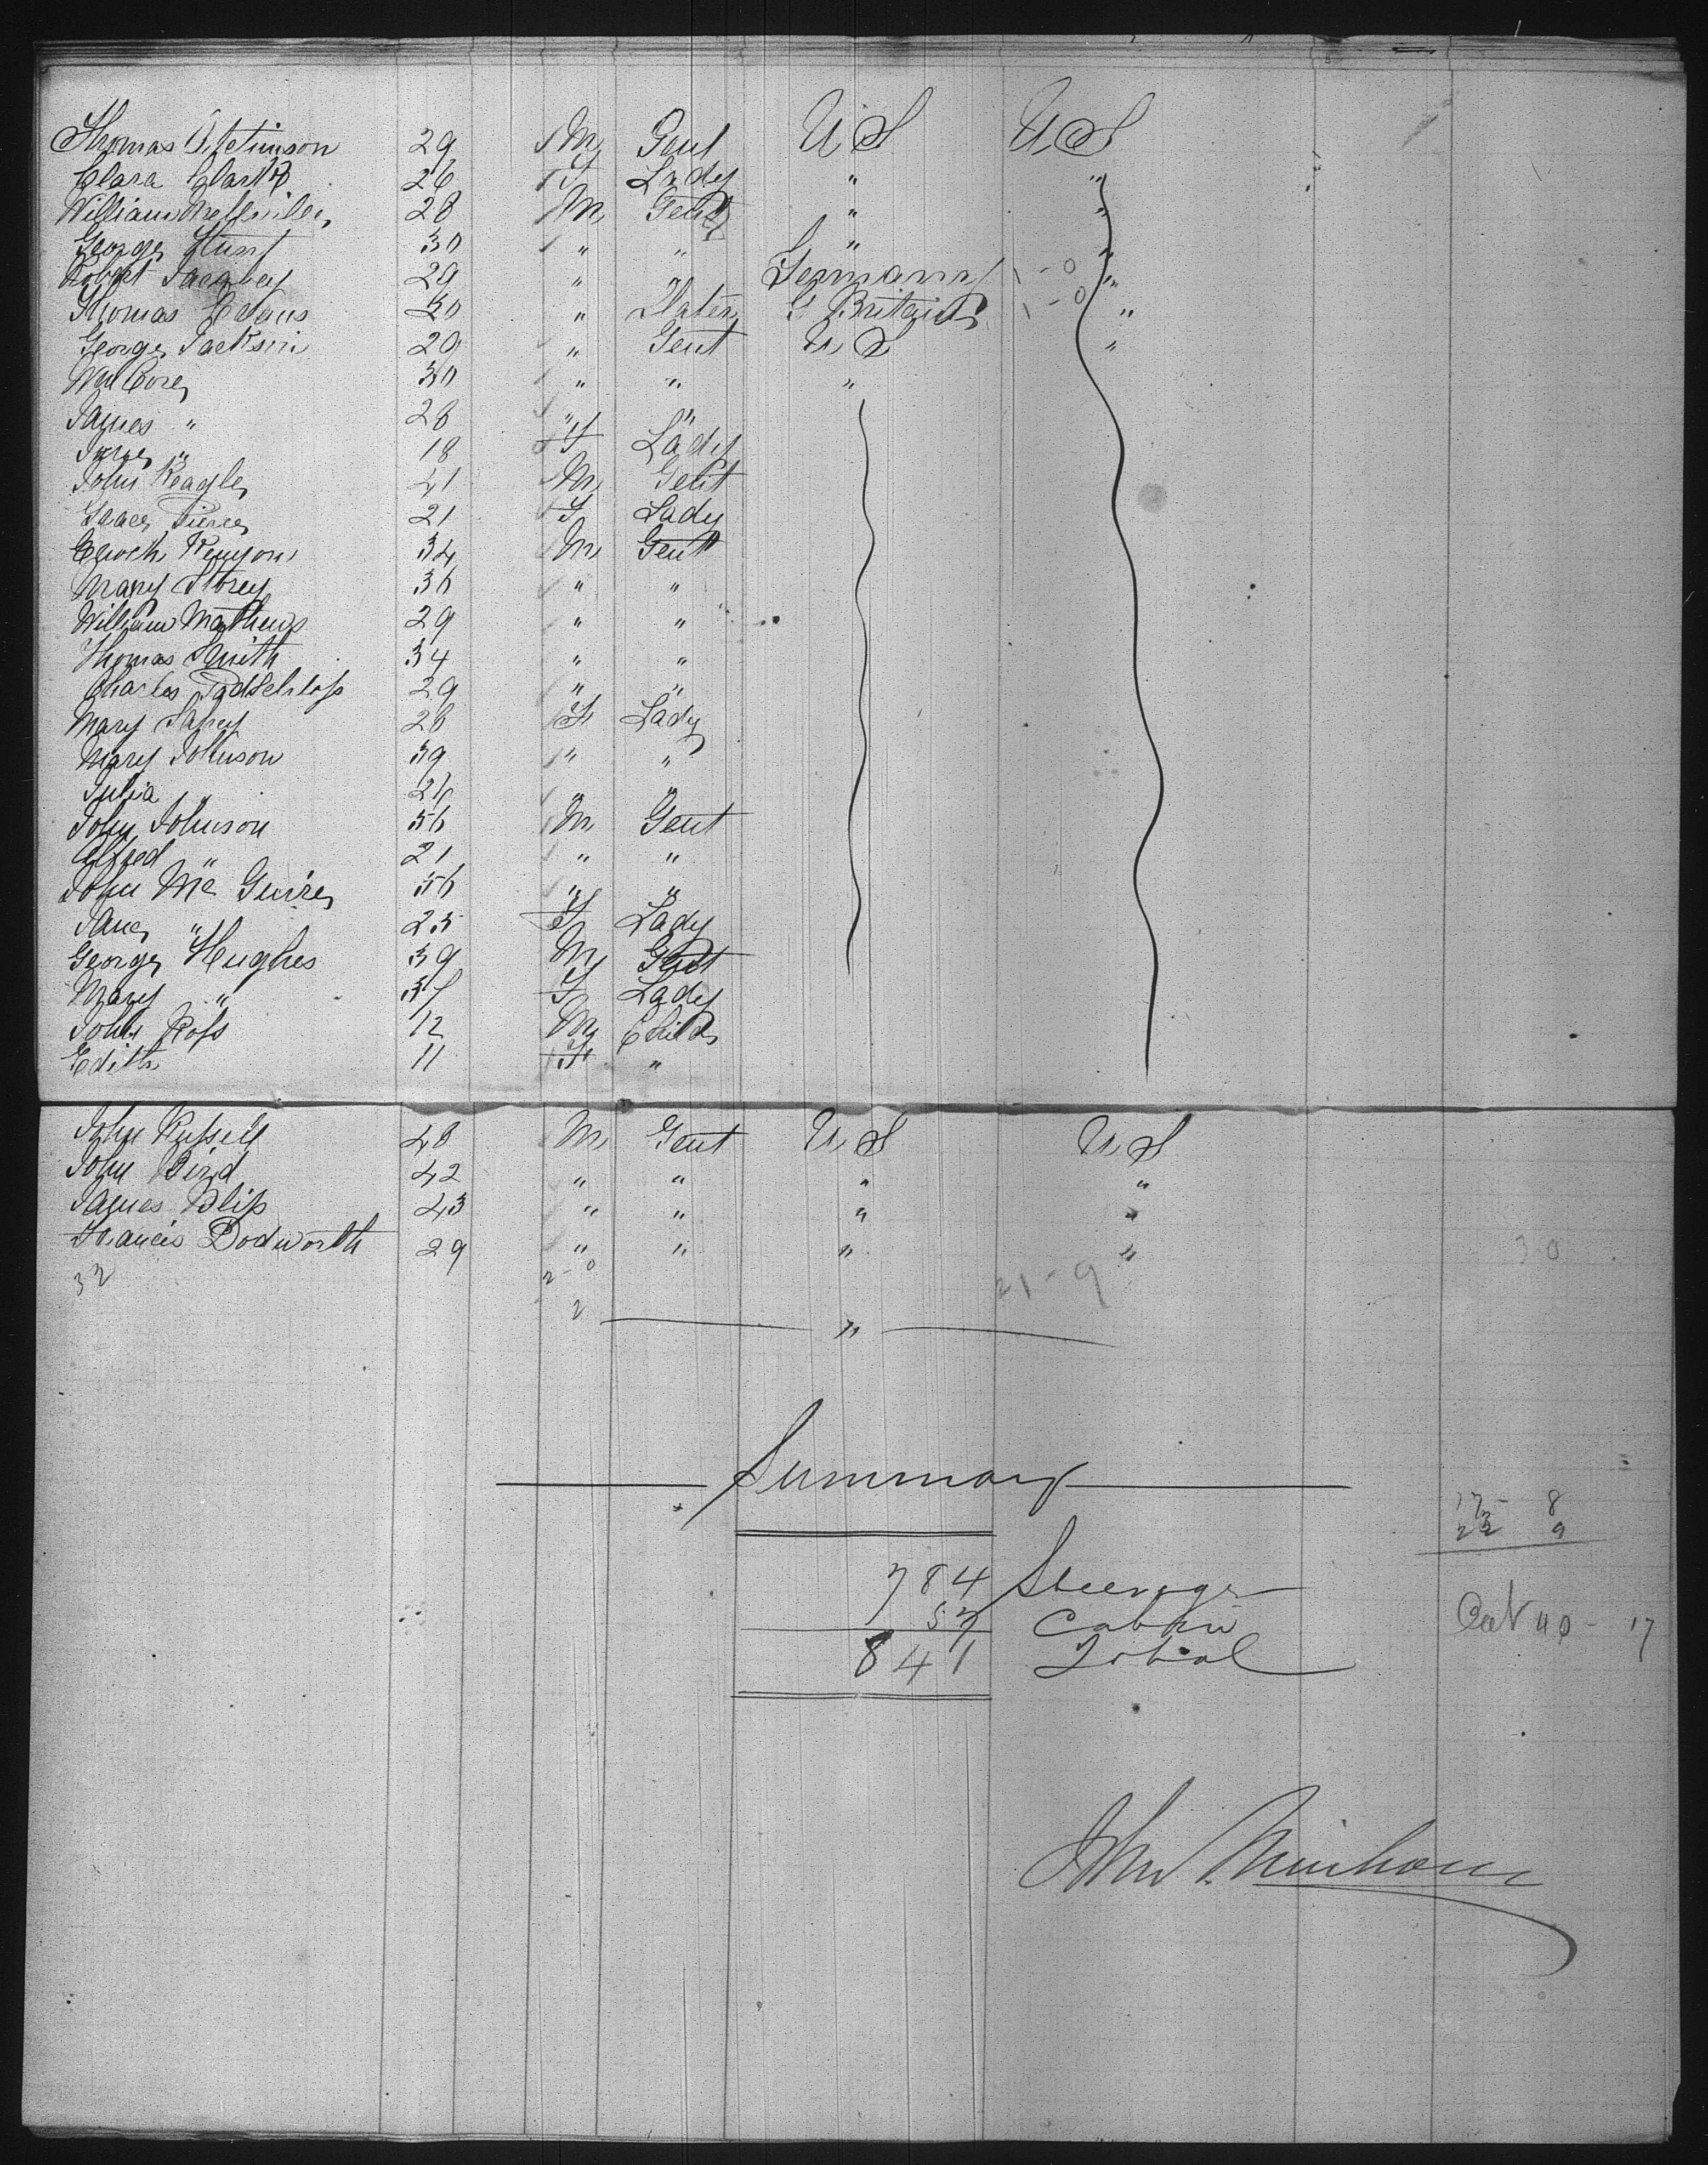 Thomas Stetimson 29 M Gent U S U S
Clara Clark 26 F Lady " "
William 28 M Gent " "
George Hunt 30 " " " "
Robert 29 " " Germany 1-0 "
Thomas Evans 30 " Slater G Britain 1-0 "
George Jackson 29 " Gent U S "
Wm Core 30 " " "
James " 28 " "
Jane " 18 F Lady
John Keagle 41 M Gent
Grace Pierce 21 F Lady
Enoch Kenyon 34 M Gent
Mary Storey 36 " "
William Mathews 29 " "
Thomas Smith 34 " "
Charles 29 " "
Mary 28 F Lady
Mary Johnson 39 " "
Julia " 26 " "
John Johnson 56 M Gent
Alfred " 21 " "
John Mc Guire 56 " "
Jane " 25 F Lady
George Hughes 39 M Gent
Mary " 37 F Lady
John Ross 12 M Child
Edith 11 F "
John Russell 48 M Gent U S U S
John Bird 42 " " " "
James Bliss 43 " " " "
Francis Dodworth 29 " " " "
30
32 2-0 21-9
2 "
Summary
8
22 9
784 Steerage
57 Cabin
841 Total
40 - 17
John